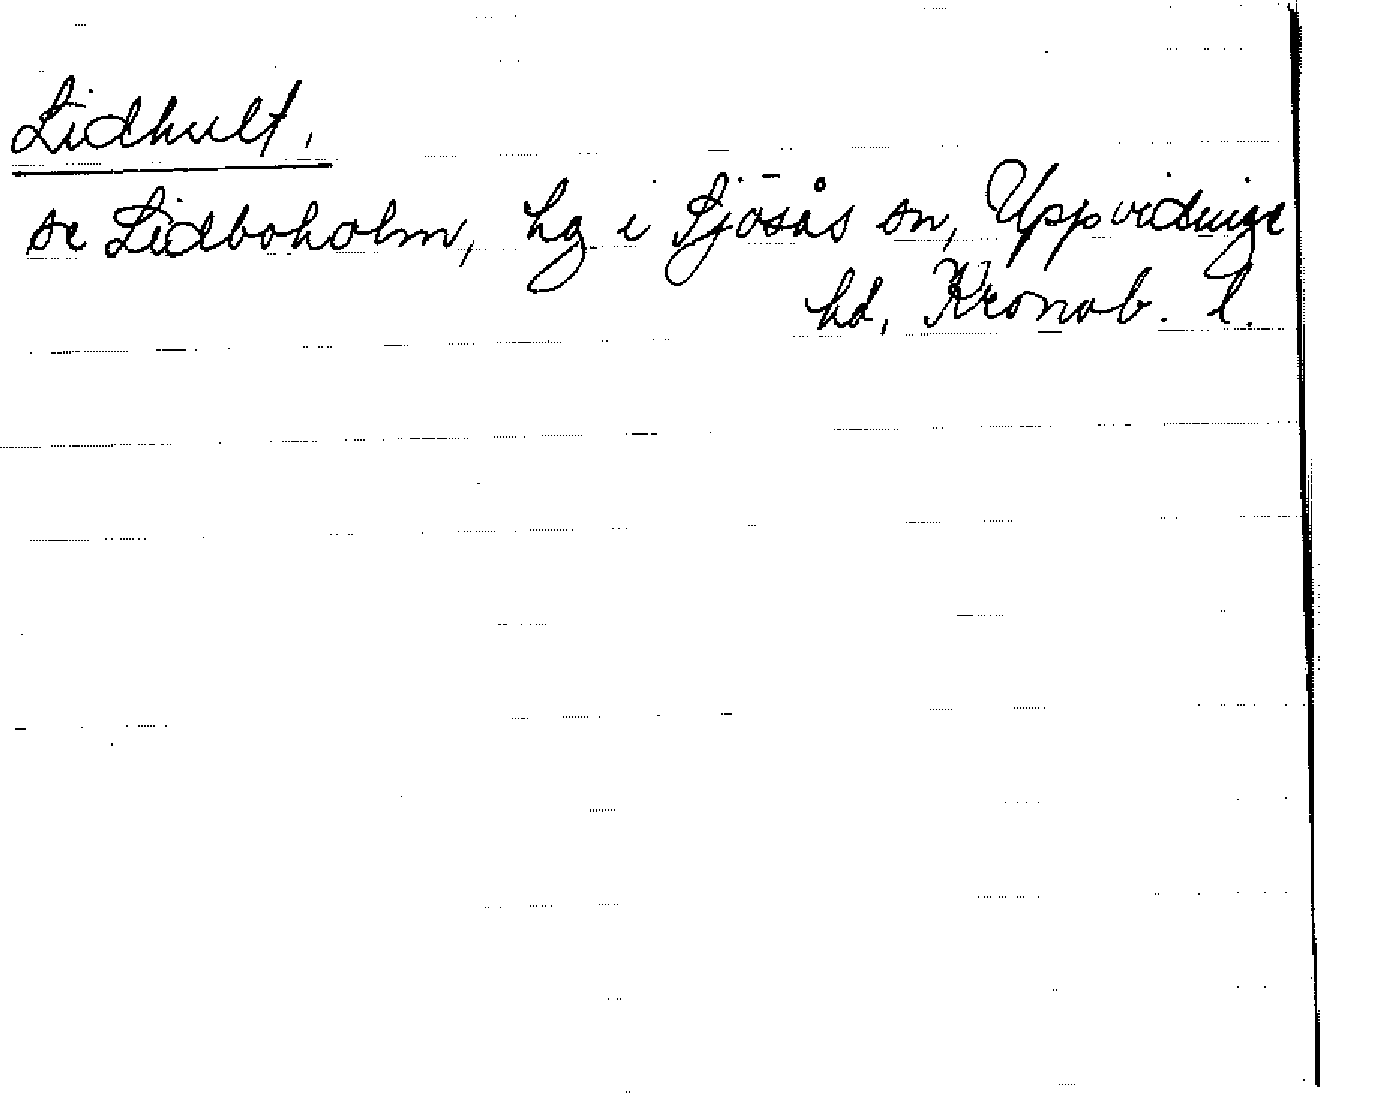 Lidhult,
se Lidboholm, hg i Sjösås sn, Uppvidinge
hd, Kronob. l.